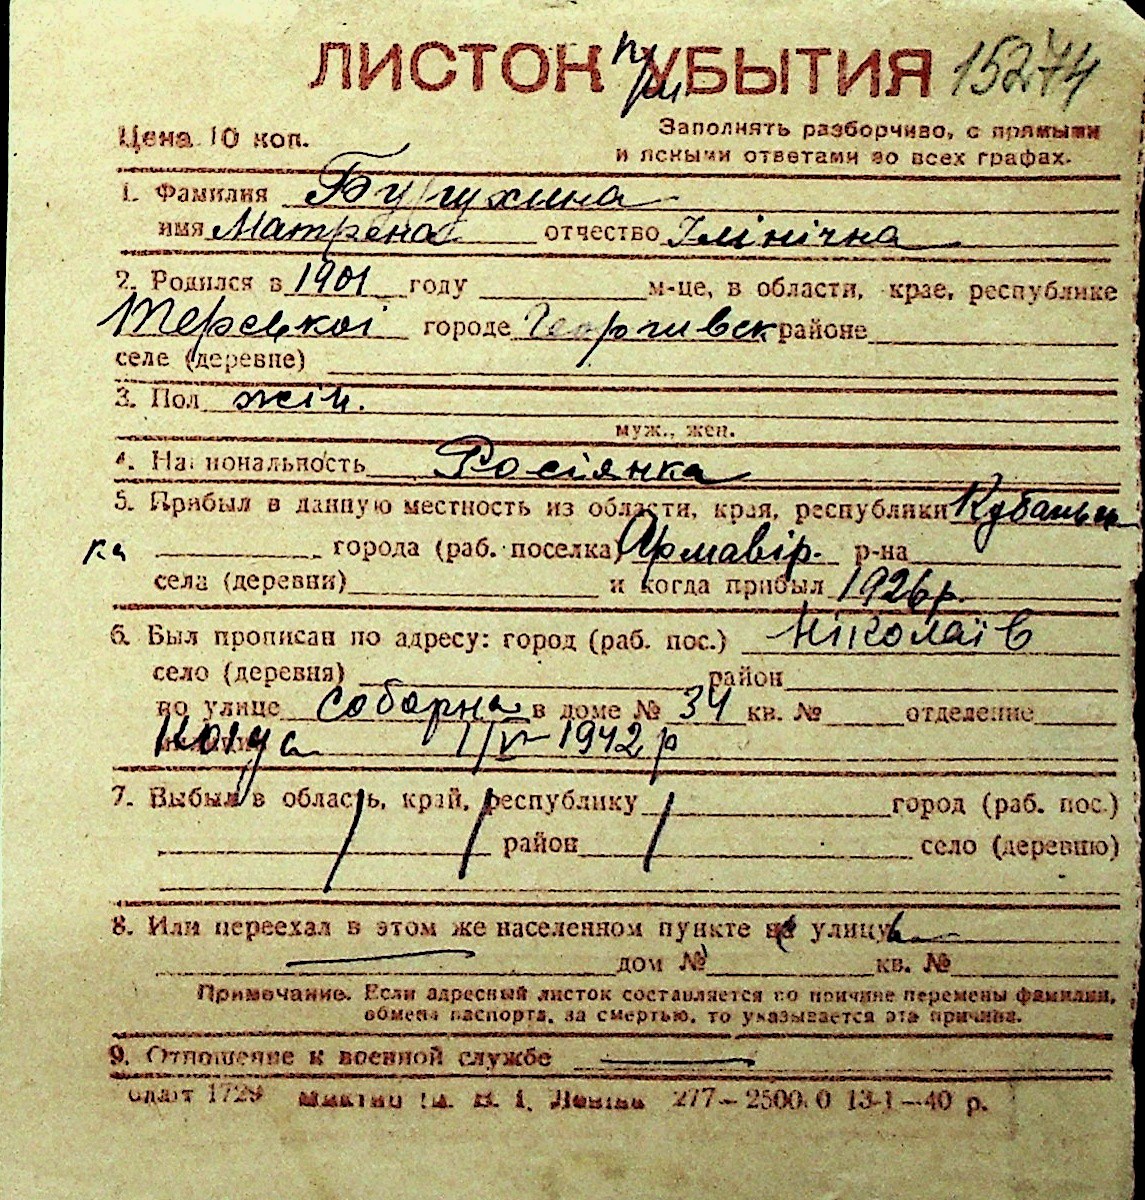 ЛИСТОК УБЫТИЯ 15274
при
Цена 10 коп.
Заполнять разборчиво, с прямыми
и ясными ответами во всех графах.
1. Фамилия Бугухина
имя Матрена отчество Ілінічна
2. Родился в 1901 году м-це, в области, крае, республике
Терської городе Георгиевск районе
селе (деревне)
3. Пол жін.
муж., жен.
4. Национальность Росіянка
5. Прибыл в данную местность из области, края, республики Кубаньс
ка города (раб. поселка) Армавір. р-на
села (деревни) и когда прибыл 1926 р.
6. Был прописан по адресу: город (раб. пос.) Ніколаїв
село (деревня) район
по улице Соборна в доме № 34 кв. № отделение
милиции 1/VI-1942 р
7. Выбыл в область, край, республику город (раб. пос.)
район село (деревню)
8. Или переехал в этом же населенном пункте на улицу
дом № кв. №
Примечание. Если адресный листок составляется по причине перемены фамилии,
обмена паспорта, за смертью, то указывается эта причина.
9. Отношение к военной службе
1729 Леніна 277—2500.0 13-1—40 р.